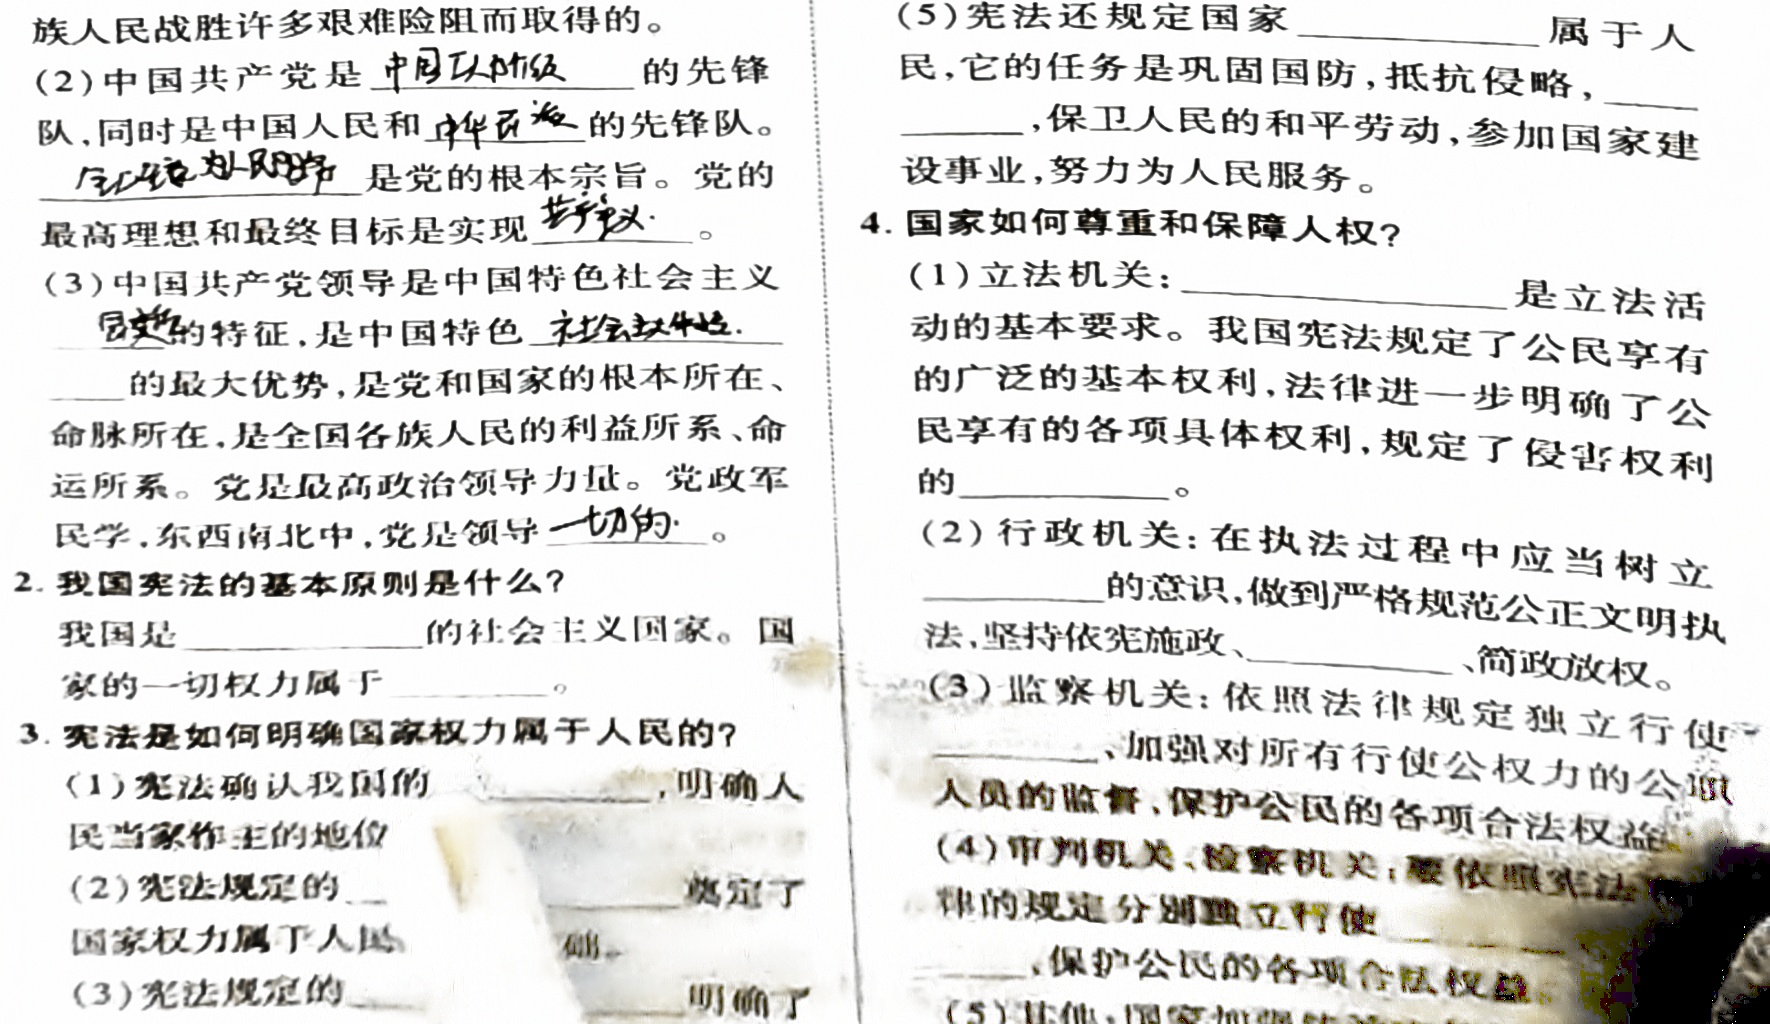 族人民战胜许多艰难险阻而取得的。
(2)中国共产党是 中国工人阶级 的先锋
队,同时是中国人民和 中华民族 的先锋队。
全心全意为人民服务 是党的根本宗旨。党的
最高理想和最终目标是实现 共产主义 。
(3)中国共产党领导是中国特色社会主义
的特征,是中国特色 社会主义制度
____的最大优势,是党和国家的根本所在、
命脉所在,是全国各族人民的利益所系、命
运所系。党是最高政治领导力量。党政军
民学,东西南北中,党是领导 一切的 。
2. 我国宪法的基本原则是什么?
我国是____的社会主义国家。国
家的一切权力属于____。
3. 宪法是如何明确国家权力属于人民的?
(1)宪法确认我国的____,明确人
民当家作主的地位
(2)宪法规定的____奠定了
国家权力属于人民 础。
(3)宪法规定的____明确了
(5)宪法还规定国家____属于人
民,它的任务是巩固国防,抵抗侵略,____
____,保卫人民的和平劳动,参加国家建
设事业,努力为人民服务。
4. 国家如何尊重和保障人权?
(1)立法机关:____是立法活
动的基本要求。我国宪法规定了公民享有
的广泛的基本权利,法律进一步明确了公
民享有的各项具体权利,规定了侵害权利
的____。
(2)行政机关:在执法过程中应当树立
____的意识,做到严格规范公正文明执
法,坚持依宪施政、____、简政放权。
(3)监察机关:依照法律规定独立行使
____、加强对所有行使公权力的公职
人员的监督,保护公民的各项合法权益
(4)审判机关、检察机关:要依照宪法
律的规定分别独立行使____
____,保护公民的各项合法权益
(5)其他:国家加强